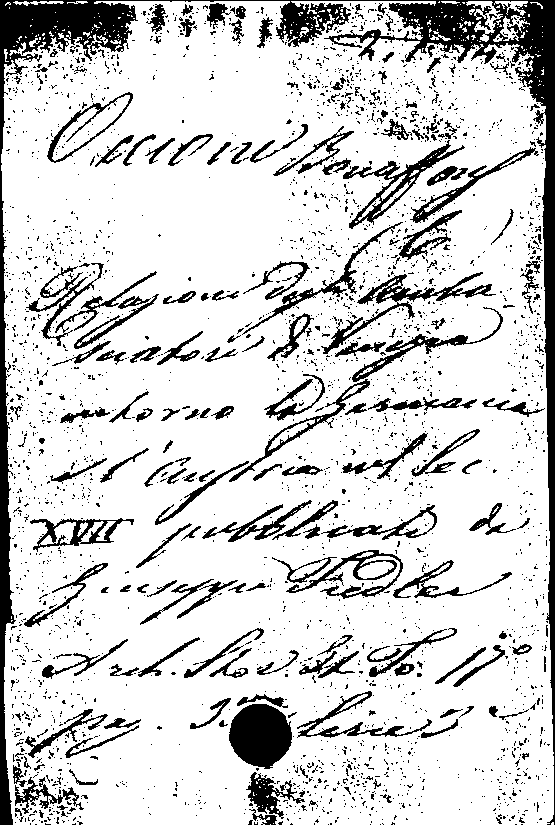 2, 1, 14
Occioni Bonaffons
C.
Relazioni degli Amba-
sciatori di Venezia
intorno la Germania
e l'Austria nel Sec.
XVII pubblicati da
Giuseppe Fiedler
Arch. Stor. It. To. 17º
pag. Serie 3ª